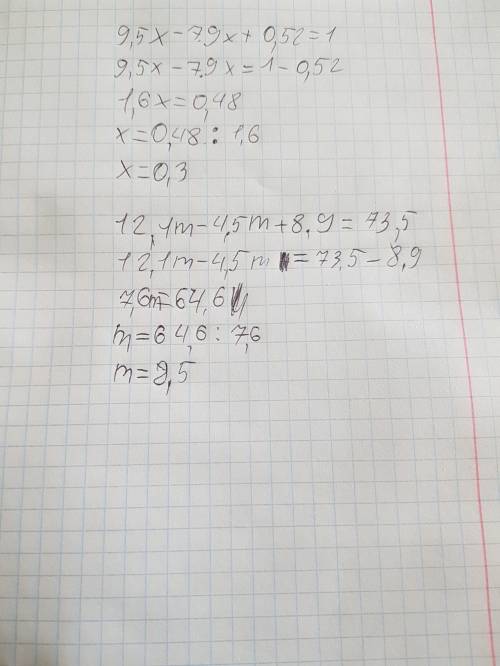 9,5x - 7.9x + 0,52 = 1
9,5x - 7.9x = 1 - 0,52
1,6x = 0,48
x = 0,48 : 1,6
x = 0,3
12,1m - 4,5m + 8,9 = 73,5
12,1m - 4,5m = 73,5 - 8,9
7,6m = 64,6
m = 64,6 : 7,6
m = 8,5